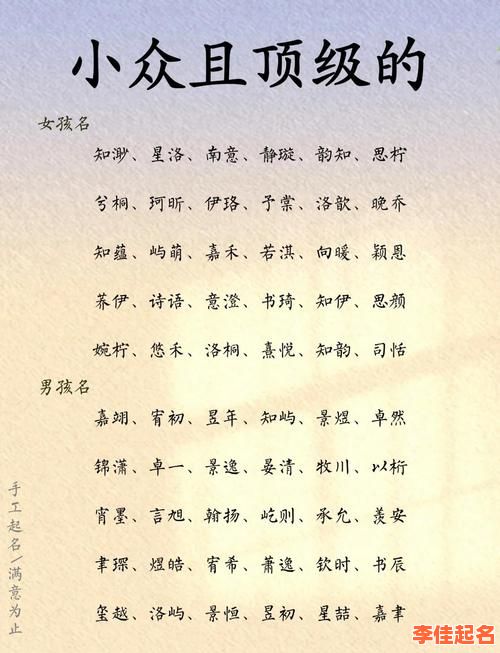 小众且顶级的
女孩名
知渺、星洛、南意、静璇、韵知、思柠
兮桐、珂昕、伊珞、予棠、洛歆、晚乔
知蕴、屿萌、嘉禾、若淇、向暖、颖恩
荞伊、诗语、意澄、书琦、知伊、思颜
婉柠、悠禾、洛桐、熹悦、知韵、司恬
男孩名
嘉翊、宥初、昱年、知屿、景煜、卓然
锦潇、卓一、景逸、晏清、牧川、以桁
宵墨、言旭、翰扬、屹则、承允、羡安
聿琛、煜皓、宥希、萧逸、钦时、书辰
玺越、洛屿、景恒、昱初、星喆、嘉聿
手工起名/满意为止
李佳起名